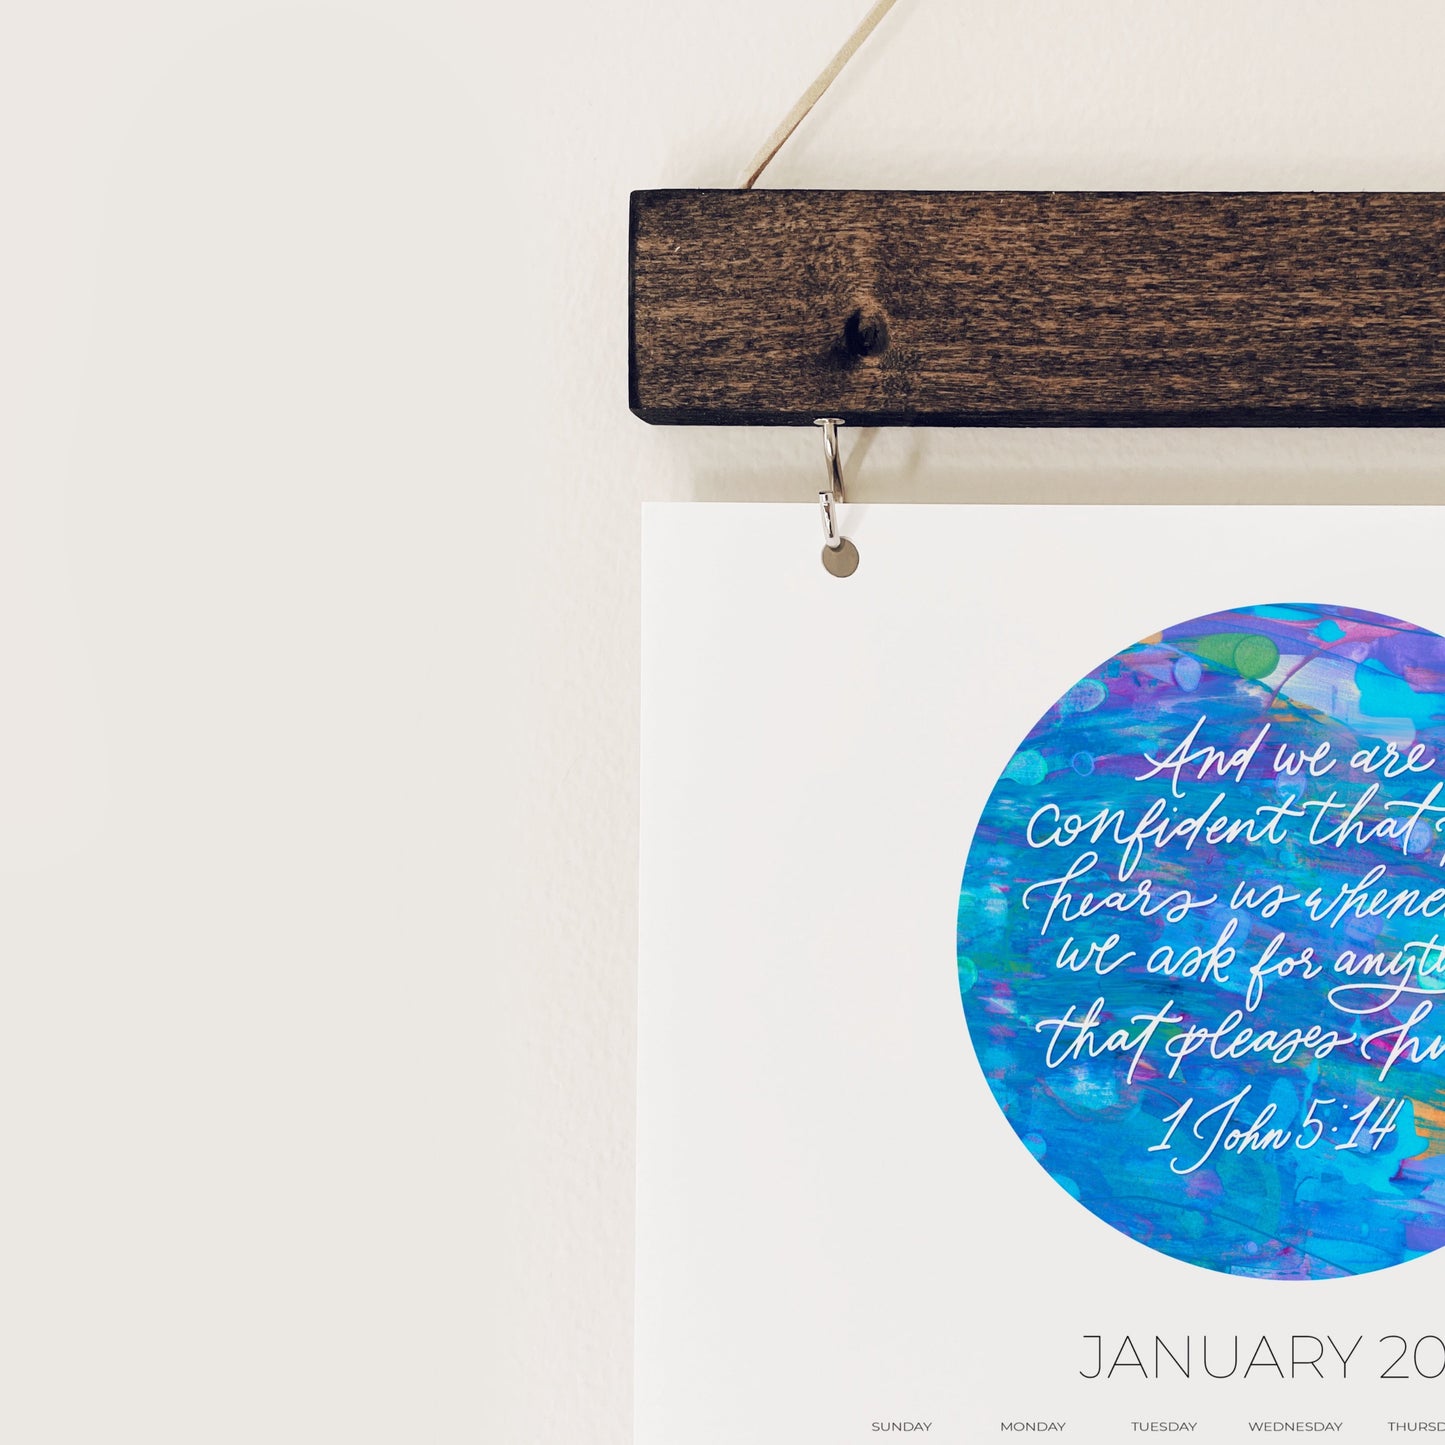 And we are
confident that
hears us whene
we ask for anyt
that pleases
1 John 5:14
JANUARY 20
SUNDAY MONDAY TUESDAY WEDNESDAY THURSD